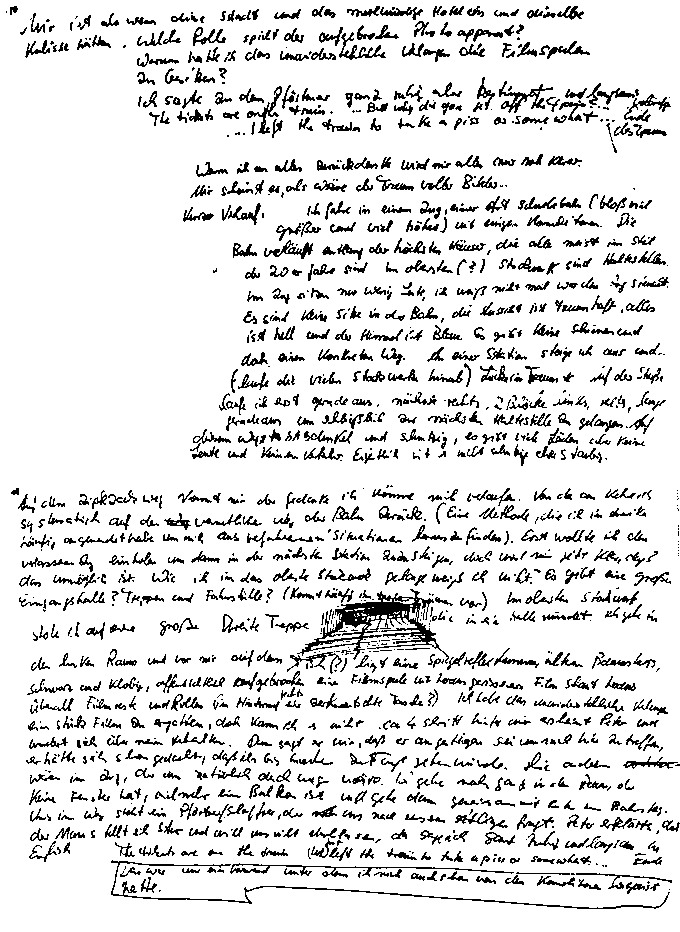 Mir ist als wenn diese Stadt und das merkwürdige Hotel ein und dieselbe
Kulisse hätten. Welche Rolle spielt der aufgebrochene Photoapparat?
Warum hatte ich das unwiderstehliche Verlangen die Filmspulen
zu
Ich sagte zu dem Pförtner ganz ruhig aber bestimmt und langsam:
The tickets are on the train. ... But why did you get off the train? ...
... I left the train to take a piss or somewhat ... Ende
des Traums
Wenn ich an alles zurückdenke wird mir alles nur noch klarer.
Mir scheint es, als wäre der Traum voller Bilder..
Kurzer Verlauf. Ich fahre in einem Zug, einer Art Schwebebahn (bloß viel
größer und viel höher) mit einigen Kommilitonen. Die
Bahn verläuft entlang der höchsten Häuser, die alle meist im Stil
der 20er Jahre sind. Im obersten (?) Stockwerk sind Haltestellen.
Im Zug sitzen nur wenig Leute, ich weiß nicht mal wer den Zug steuert.
Es sind keine Sitze in der Bahn, die Aussicht ist traumhaft, alles
ist hell und der Himmel ist Blau. Es gibt keine Schienen und
doch einen konkreten Weg. An einer Station steige ich aus und..
(laufe die vielen Stockwerke hinab) Lücke im Traum Auf der Straße
laufe ich erst geradeaus, nächste rechts, 2 Blöcke links, rechts, lange
geradeaus um schließlich zur nächsten Haltestelle zu gelangen. Auf
diesem Weg ist es dunkel und schmutzig, es gibt viele Läden aber keine
Leute und keinen Verkehr. Eigentlich ist es nicht schmutzig eher staubig.
Auf dem Zickzackweg kommt mir der Gedanke ich könnte mich verlaufen. Von da an kehre ich
systematisch auf den vermutlichen Weg der Bahn zurück. (Eine Methode, die ich
häufig angewendet habe um mich aus verfahrenen Situationen herauszufinden). Erst wollte ich den
Zug einholen um dann in der nächsten Station zuzusteigen, doch wird mir jetzt klar, daß
das unmöglich ist. Wie ich in das oberste Stockwerk gelange weiß ich nicht. Es gibt eine große
Eingangshalle? Treppen und Fahrstühle? (Kommt häufig in meinen Träumen vor) Im obersten Stockwerk
stoße ich auf eine große Breite Treppe die in eine Halle mündet. Ich gehe in
den linken Raum und vor mir auf dem (?) liegt eine Spiegelreflexkamera, älteren Baumusters,
schwarz und klobig, offensichtlich aufgebrochen eine Filmspule mit herausgerissenem Film
überall Filmreste und Rollen (im Nachttraum Ich habe das unwiderstehliche Verlangen
ein Stück Film zu ergattern, doch kann ich es nicht. ca 4 Schritt hinter mir erscheint Peter und
wundert sich über mein Verhalten. Dann sagt er mir, daß er ausgestiegen sei um mich hier zu treffen,
er hätte sich schon gedacht, daß ich Die anderen
wären im Zug, der nun natürlich auch weg wäre. Ich gehe noch ganz in den Raum, der
keine Fenster hat, vielmehr ein Balkon ist und gehe dann gemeinsam mit zum Bahnsteig.
Uns im Weg steht ein Pförtner/Schaffner, der uns nach unseren fragt. Peter erklärte, daß
der Mann stellt sich stur und will uns nicht durchlassen, das Gespräch ruhig und langsam in
Englisch The tickets are on the train (We) left the train to take a piss or somewhat... Ende
Das war nur ein Vorwand unter dem ich mich auch schon von den Kommilitonen
hatte.